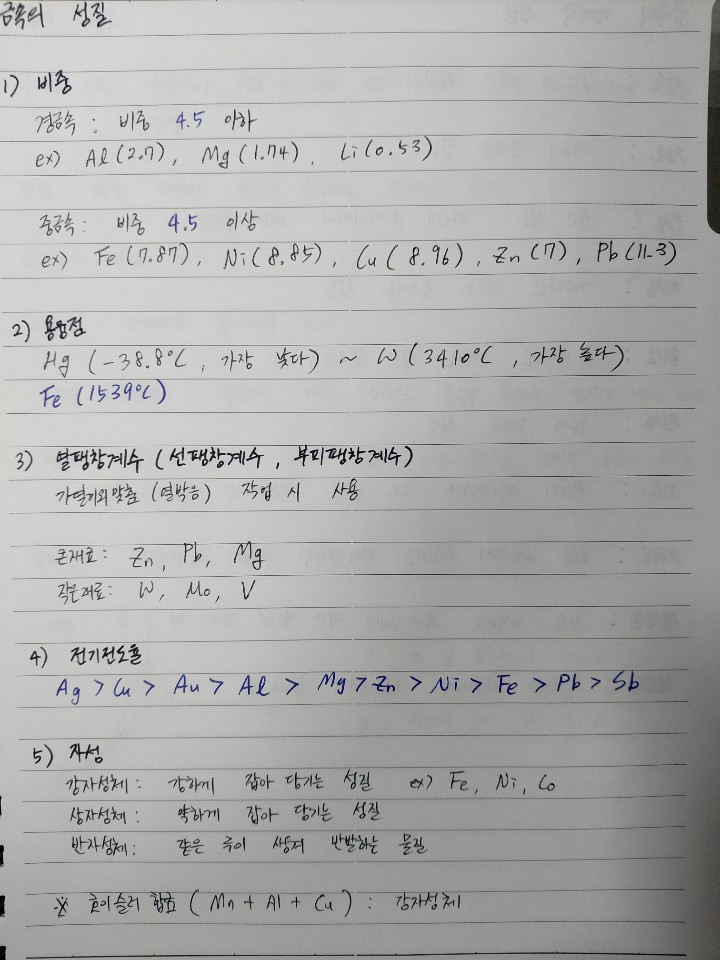 금속의 성질
1) 비중
경금속 : 비중 4.5 이하
ex) Al(2.7), Mg(1.74), Li(0.53)
중금속: 비중 4.5 이상
ex) Fe(7.87), Ni(8.85), Cu(8.96), Zn(7), Pb(11.3)
2) 용융점
Hg (-38.8℃, 가장 낮다) ~ W(3410℃, 가장 높다)
Fe (1539℃)
3) 열팽창계수 (선팽창계수, 부피팽창계수)
가열끼워맞춤 (열박음) 작업 시 사용
큰재료: Zn, Pb, Mg
작은재료: W, Mo, V
4) 전기전도율
Ag > Cu > Au > Al > Mg > Zn > Ni > Fe > Pb > Sb
5) 자성
강자성체: 강하게 잡아 당기는 성질 ex) Fe, Ni, Co
상자성체: 약하게 잡아 당기는 성질
반자성체: 같은 극이 생겨 반발하는 물질
※ 호이슬러 합금 (Mn + Al + Cu) : 강자성체